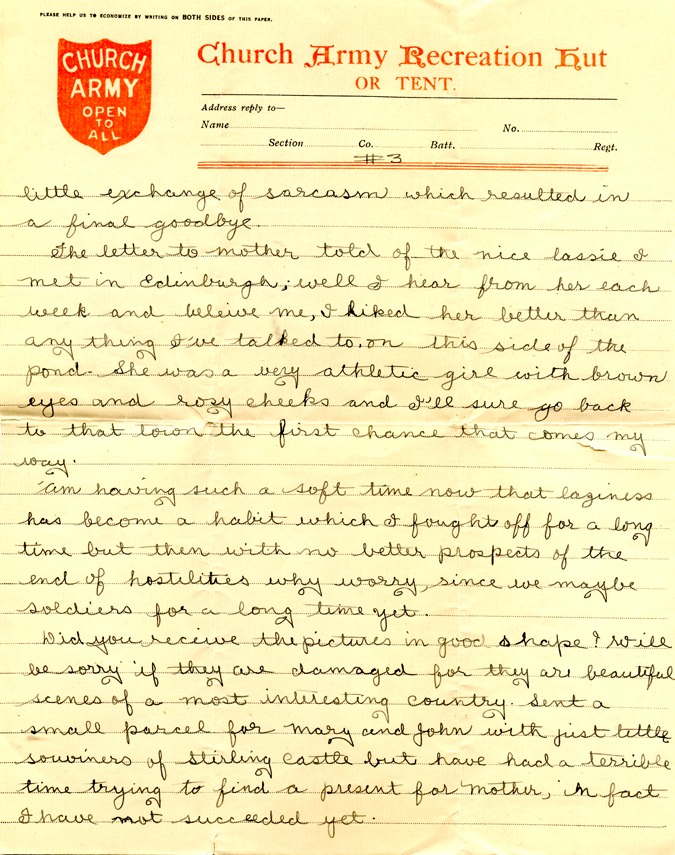 PLEASE HELP US TO ECONOMIZE BY WRITING ON BOTH SIDES OF THIS PAPER.
CHURCH
ARMY
OPEN
TO
ALL
Church Army Recreation Hut
OR TENT.
Address reply to—
Name No.
Section Co. Batt. Regt.
#3
little exchange of sarcasm which resulted in
a final goodbye.
The letter to mother told of the nice lassie I
met in Edinburgh; well I hear from her each
week and beleive me, I liked her better than
any thing I've talked to on this side of the
pond. She was a very athletic girl with brown
eyes and rosy cheeks and I'll sure go back
to that town the first chance that comes my
way.
Am having such a soft time now that laziness
has become a habit which I fought off for a long
time but then with no better prospects of the
end of hostilities why worry, since we maybe
soldiers for a long time yet.
Did you receive the pictures in good shape? Will
be sorry if they are damaged for they are beautiful
scenes of a most interesting country. Sent a
small parcel for Mary and John with just little
souviners of Stirling Castle but have had a terrible
time trying to find a present for mother, in fact
I have not succeeded yet.